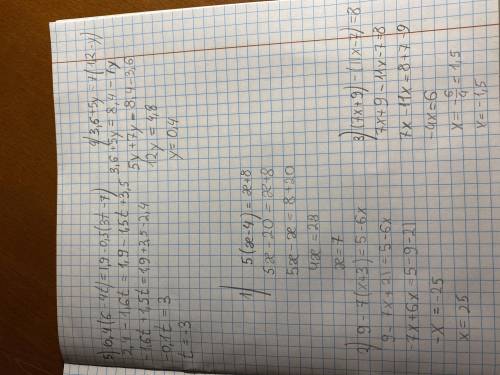 1) 5(x-4) = x+8
5x-20 = x+8
5x-x = 8+20
4x = 28
x = 7
2) 9-7(x+3) = 5-6x
9-7x+21 = 5-6x
-7x+6x = 5-9-21
-x = 25
x = 25
3) (7x+9)-(11x-7) = 8
7x+9-11x-7 = 8
7x-11x = 8+7-9
-4x = 6
x = -6/4 = 1,5
x = -1,5
4) 3,6+5y = 7(1,2-y)
3,6+5y = 8,4-7y
5y+7y = 8,4-3,6
12y = 4,8
y = 0,4
5) 0,4(6-4t) = 1,9-0,5(3t-7)
2,4-1,6t = 1,9-1,5t+3,5
-1,6t+1,5t = 1,9+3,5-2,4
-0,1t = 3
t = -3